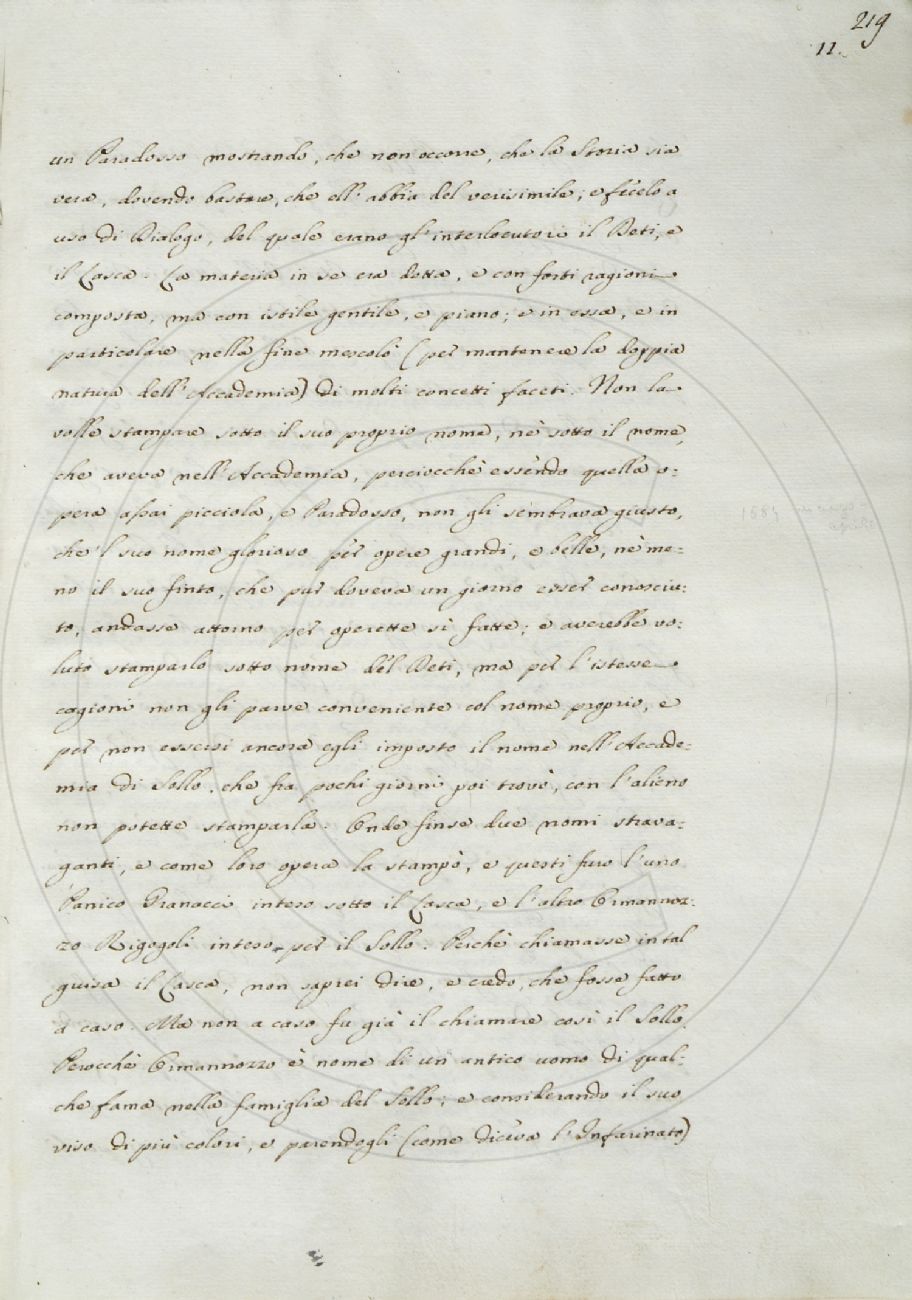 219
11.
un Paradosso mostrando, che non occorre, che la Storia sia
vera, dovendo bastare, che ell' abbia del verisimile; e fecelo a
uso di Dialogo, del quale erano gl' interlocutori il Deti, e
il Lasca. La materia in se era dotta, e con forti ragioni
composta, ma con istile gentile, e piano; e in essa, e in
particolare nella fine mescolò (per mantenere la doppia
natura dell' Accademia) di molti concetti faceti. Non la
volle stampare sotto il suo proprio nome, nè sotto il nome,
che aveva nell' Accademia, perciocchè essendo quella o:
pera assai picciola, e Paradosso, non gli sembrava giusto,
che 'l suo nome glorioso per opere grandi, e belle, nè me:
no il suo finto, che pur doveva un giorno esser conosciu:
to, andasse attorno per operette sì fatte; e averebbe vo:
luto stamparlo sotto nome del Deti, ma per l'istesse
cagioni non gli parve conveniente col nome proprio, e
per non essersi ancora egli imposto il nome nell' Accade:
mia di Sollo, che fra pochi giorni poi trovò, con l'alieno
non potette stamparla. Onde finse due nomi strava:
ganti, e come loro opera la stampò, e questi furo l'uno
Panico Granacci inteso sotto il Lasca, e l'altro Ormannoz:
zo Rigogoli inteso per il Sollo. Perchè chiamasse in tal
guisa il Lasca, non saprei dire, e credo, che fosse fatto
a caso. Ma non a caso fu già il chiamare così il Sollo.
Perocchè Ormannozzo è nome di un antico uomo di qual:
che fama nella famiglia del Sollo; e considerando il suo
viso di più colori, e parendogli (come diceva l'Infarinato)